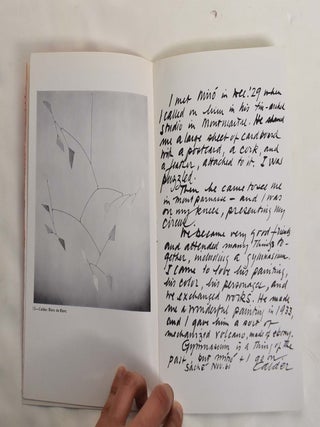 I met Miró in Dec. '29 when
I called on him in his
studio in Montmartre. He showed
me a large sheet of cardboard
with a postcard, a cork, and
a feather, attached to it. I was
puzzled.
Then he came to see me
in Montparnasse – and I was
on my knees, presenting my
circus.
We became very good friends
and attended many things to-
gether, including a gymnasium.
I came to love his painting,
his color, his personages, and
we exchanged works. He made
me a wonderful painting in 1933,
and I gave him a sort of
mechanized volcano, made of ebony.
Gymnasium is a thing of the
past, but Miró & I go on.
Saché Nov. 61 Calder
Calder: Blanc sur Blanc